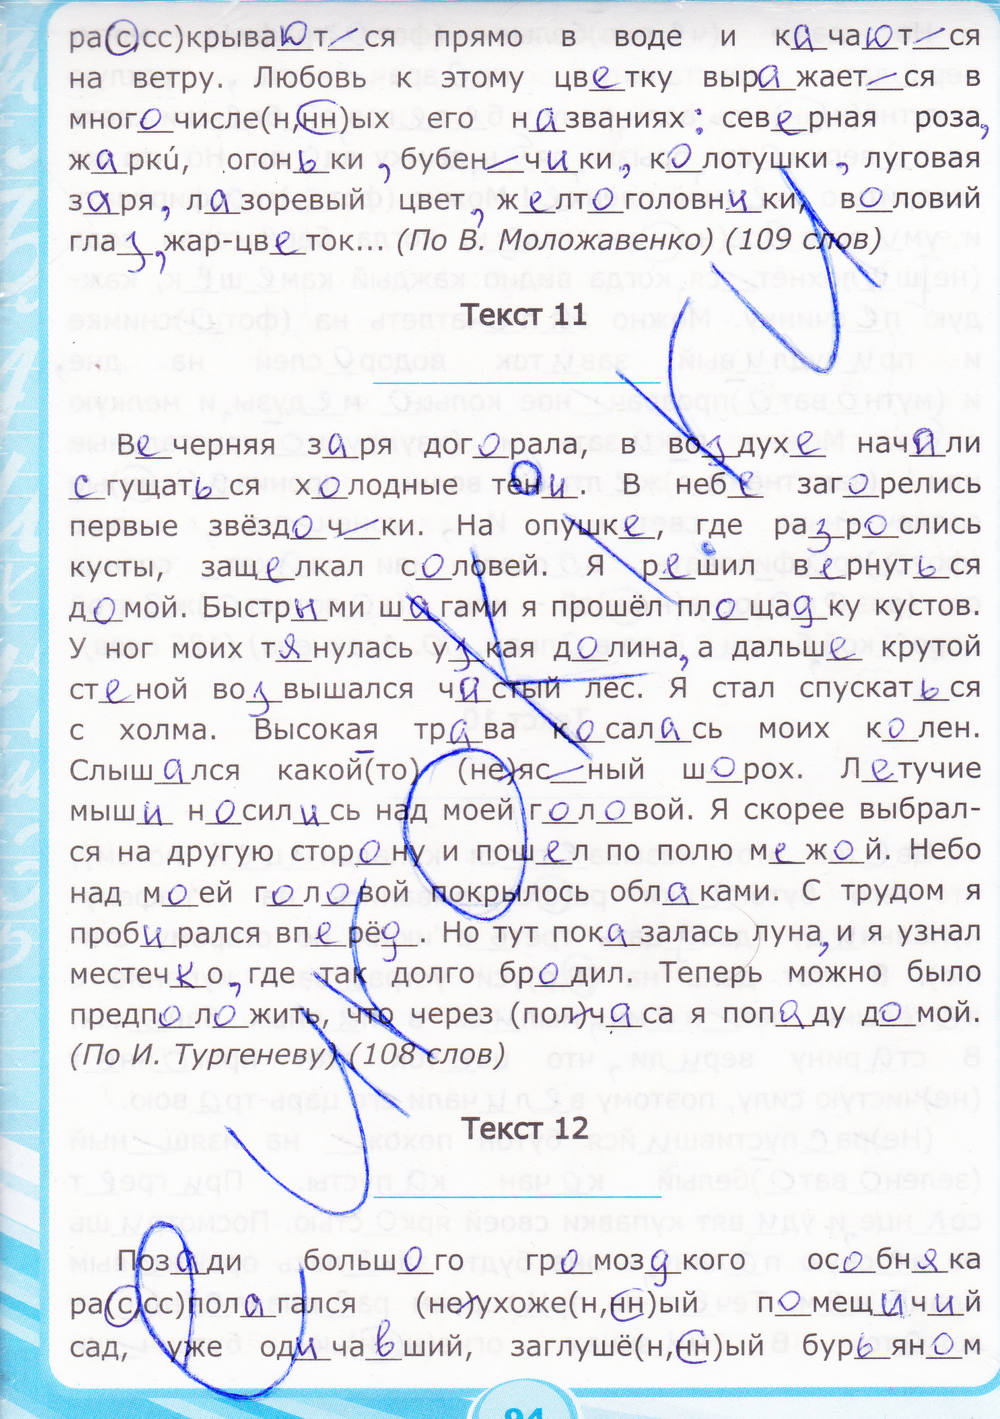 ра(с,сс)крывают_ся прямо в воде и качают_ся
на ветру. Любовь к этому цветку выражает_ся в
многочисле(н,нн)ых его названиях: северная роза,
жаркИ, огоньки, бубен_чики, колотушки, луговая
заря, лазоревый цвет, желтоголовники, воловий
глаз, жар-цветок... (По В. Моложавенко) (109 слов)
Текст 11
Вечерняя заря догорала, в воздухе начали
сгущаться холодные тени. В небе загорелись
первые звёздоч_ки. На опушке, где разрослись
кусты, защелкал соловей. Я решил вернуться
домой. Быстрыми шагами я прошёл площадку кустов.
У ног моих тянулась узкая долина, а дальше крутой
стеной возвышался чистый лес. Я стал спускаться
с холма. Высокая трава косалась моих колен.
Слышался какой(то) (не)яс_ный шорох. Летучие
мыши носились над моей головой. Я скорее выбрал-
ся на другую сторону и пошел по полю межой. Небо
над моей головой покрылось облаками. С трудом я
пробирался вперёд. Но тут показалась луна, и я узнал
местечко, где так долго бродил. Теперь можно было
предположить, что через (пол)часа я попаду домой.
(По И. Тургеневу) (108 слов)
Текст 12
Позади большого громоздкого особняка
ра(с,сс)полагался (не)ухоже(н,нн)ый помещичий
сад, уже одичавший, заглушё(н,нн)ый бурьяном
94